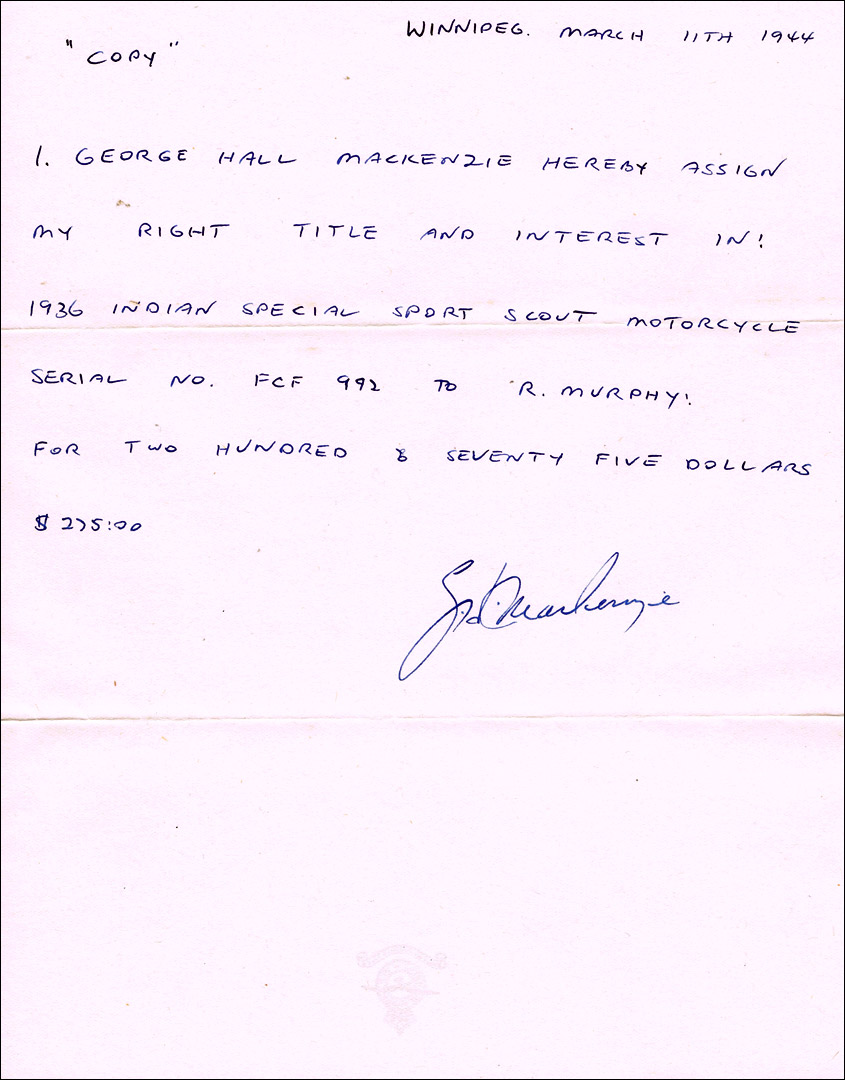 WINNIPEG. MARCH 11TH 1944
"COPY"
I. GEORGE HALL MACKENZIE HEREBY ASSIGN
MY RIGHT TITLE AND INTEREST IN!
1936 INDIAN SPECIAL SPORT SCOUT MOTORCYCLE
SERIAL NO. FCF 992 TO R. MURPHY!
FOR TWO HUNDRED & SEVENTY FIVE DOLLARS
$ 275:00
G.H. Mackenzie